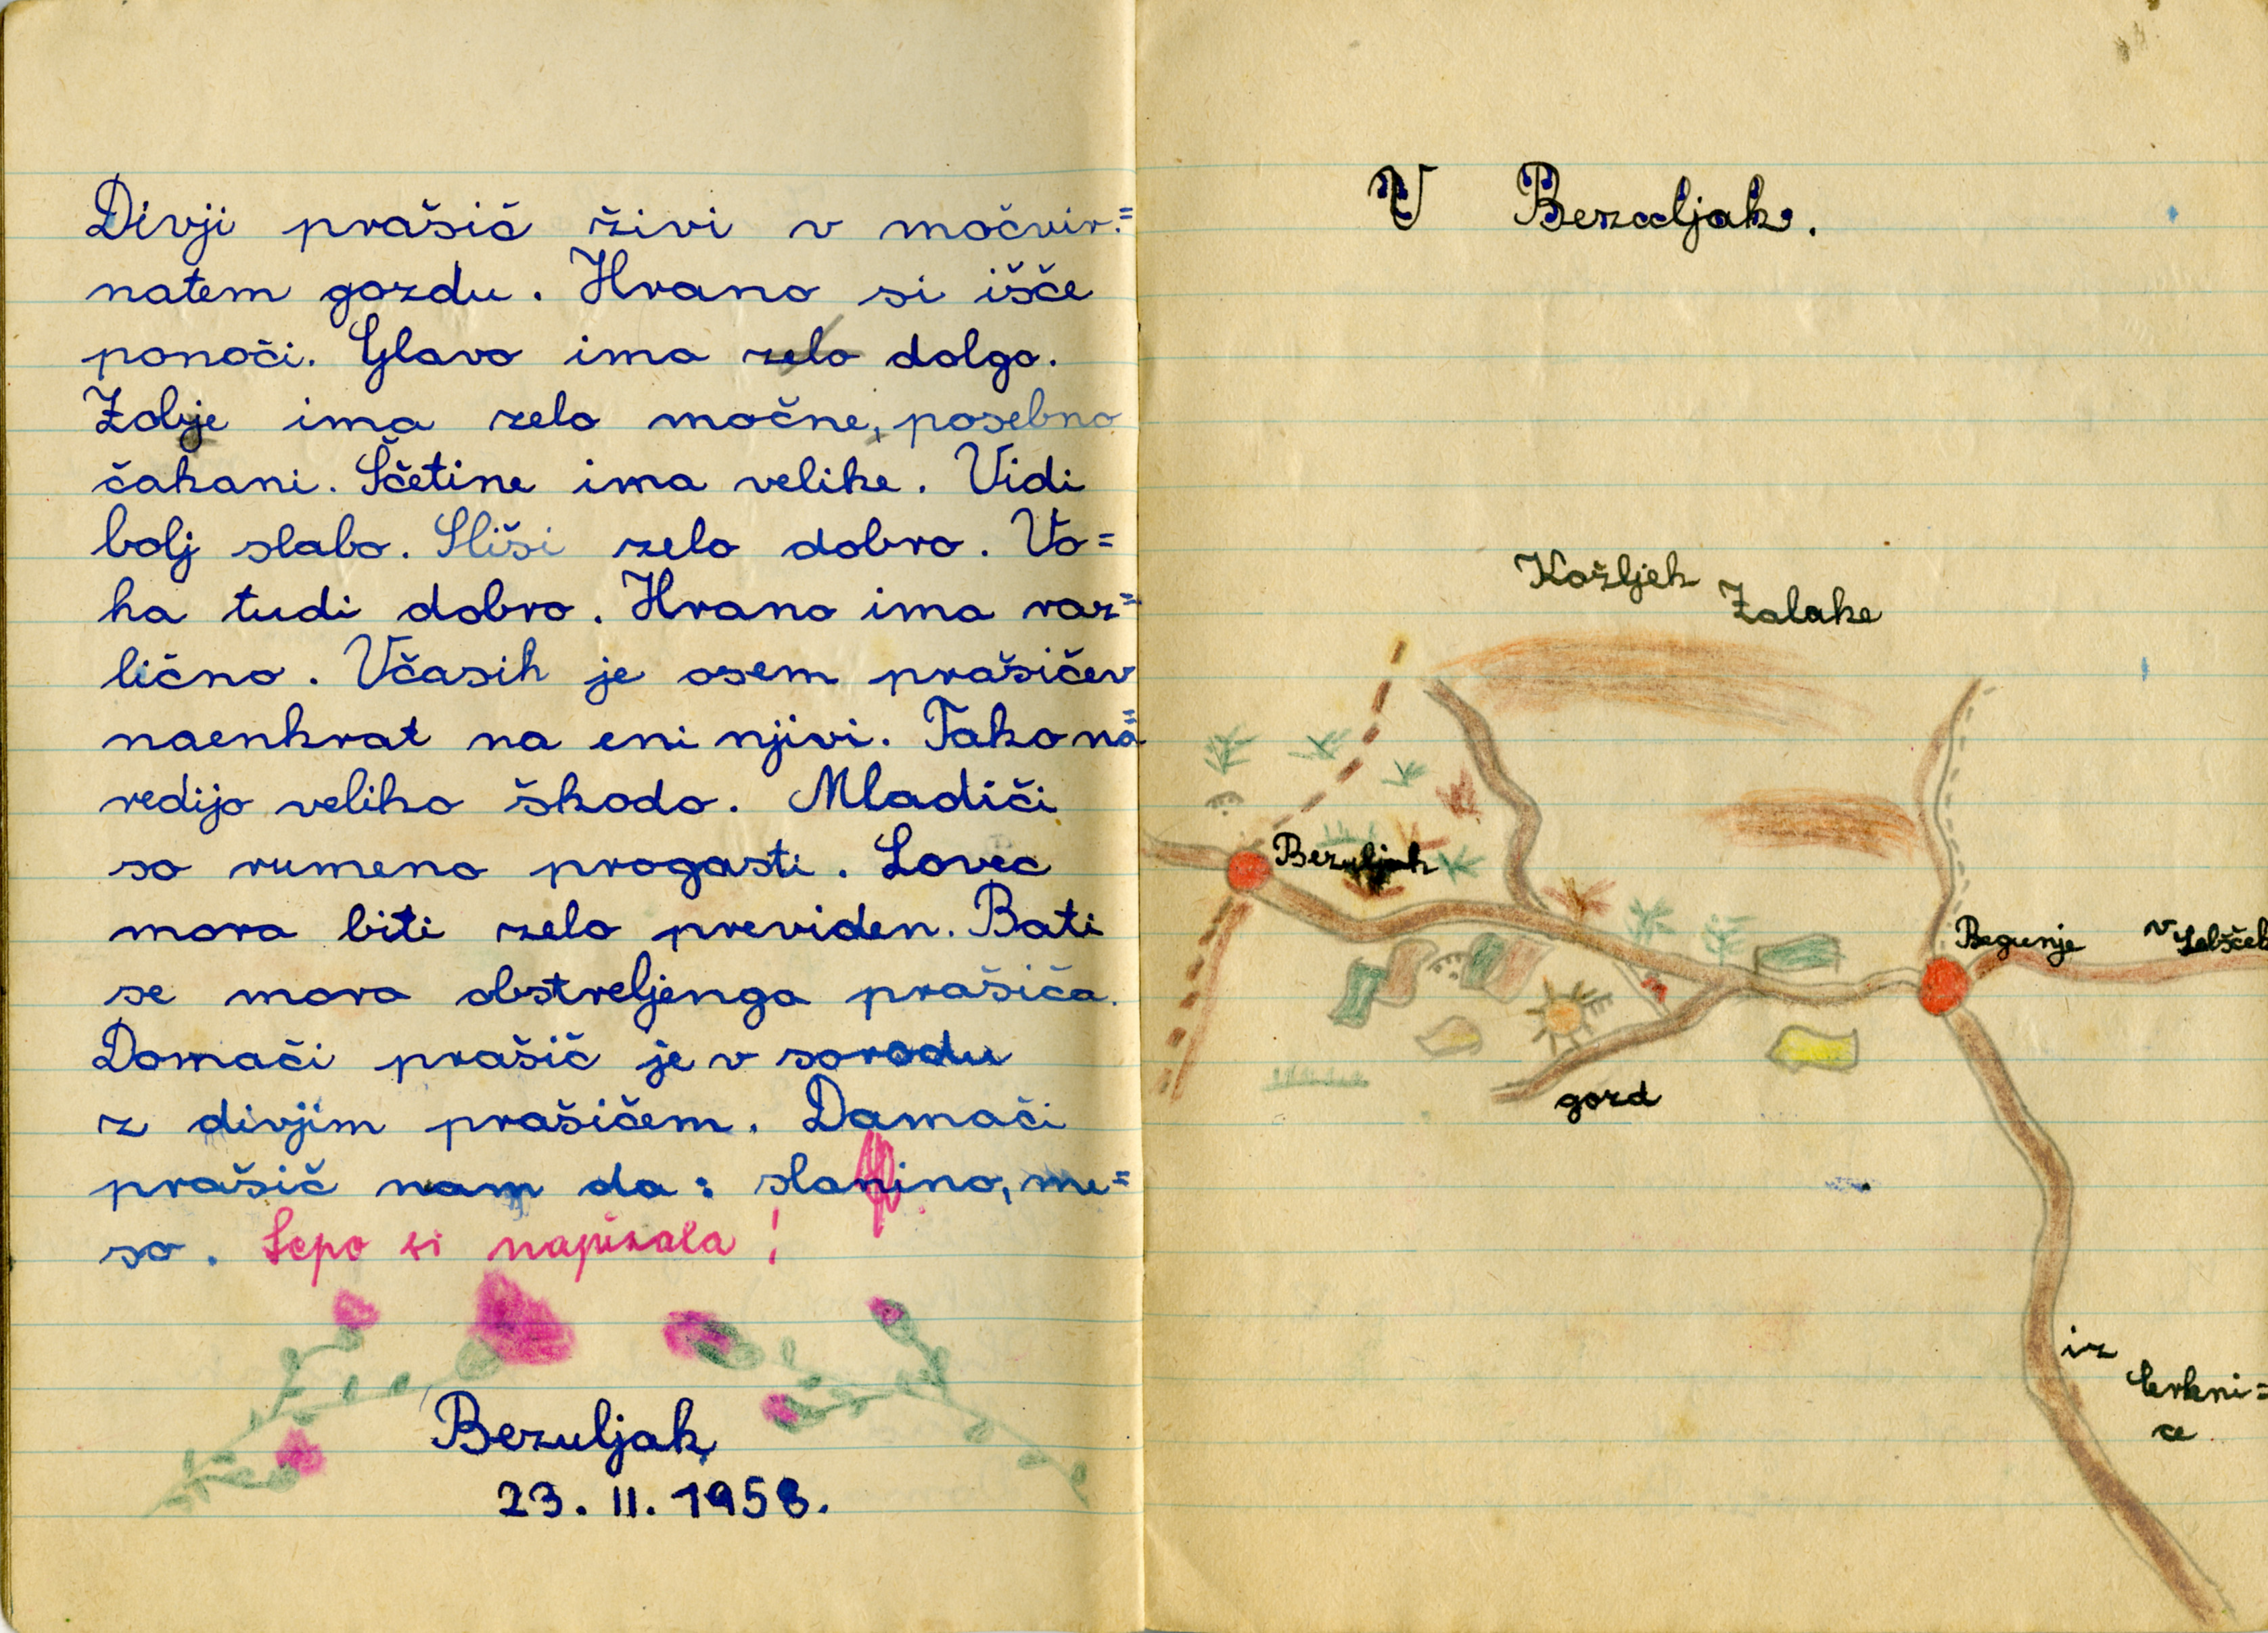 Divji prašič živi v močvir=
natem gozdu. Hrano si išče
ponoči. Glavo ima zelo dolgo.
Zobje ima zelo močne, posebno
čakani. Ščetine ima velike. Vidi
bolj slabo. Sliši zelo dobro. Vo=
ha tudi dobro. Hrano ima raz=
lično. Včasih je osem prašičev
naenkrat na eni njivi. Tako na=
redijo veliko škodo. Mladiči
so rumeno progasti. Lovec
mora biti zelo previden. Bati
se mora obstreljenga prašiča.
Domači prašič je v sorodu
z divjim prašičem. Damači
prašič nam da: slanino, me=
so. Lepo si napisala!
Bezuljak
23. II. 1958.
V Bezuljak.
Kožljek
Zalake
Bezuljak
Begunje
v Selšček
gozd
iz
Cerkni=
ce